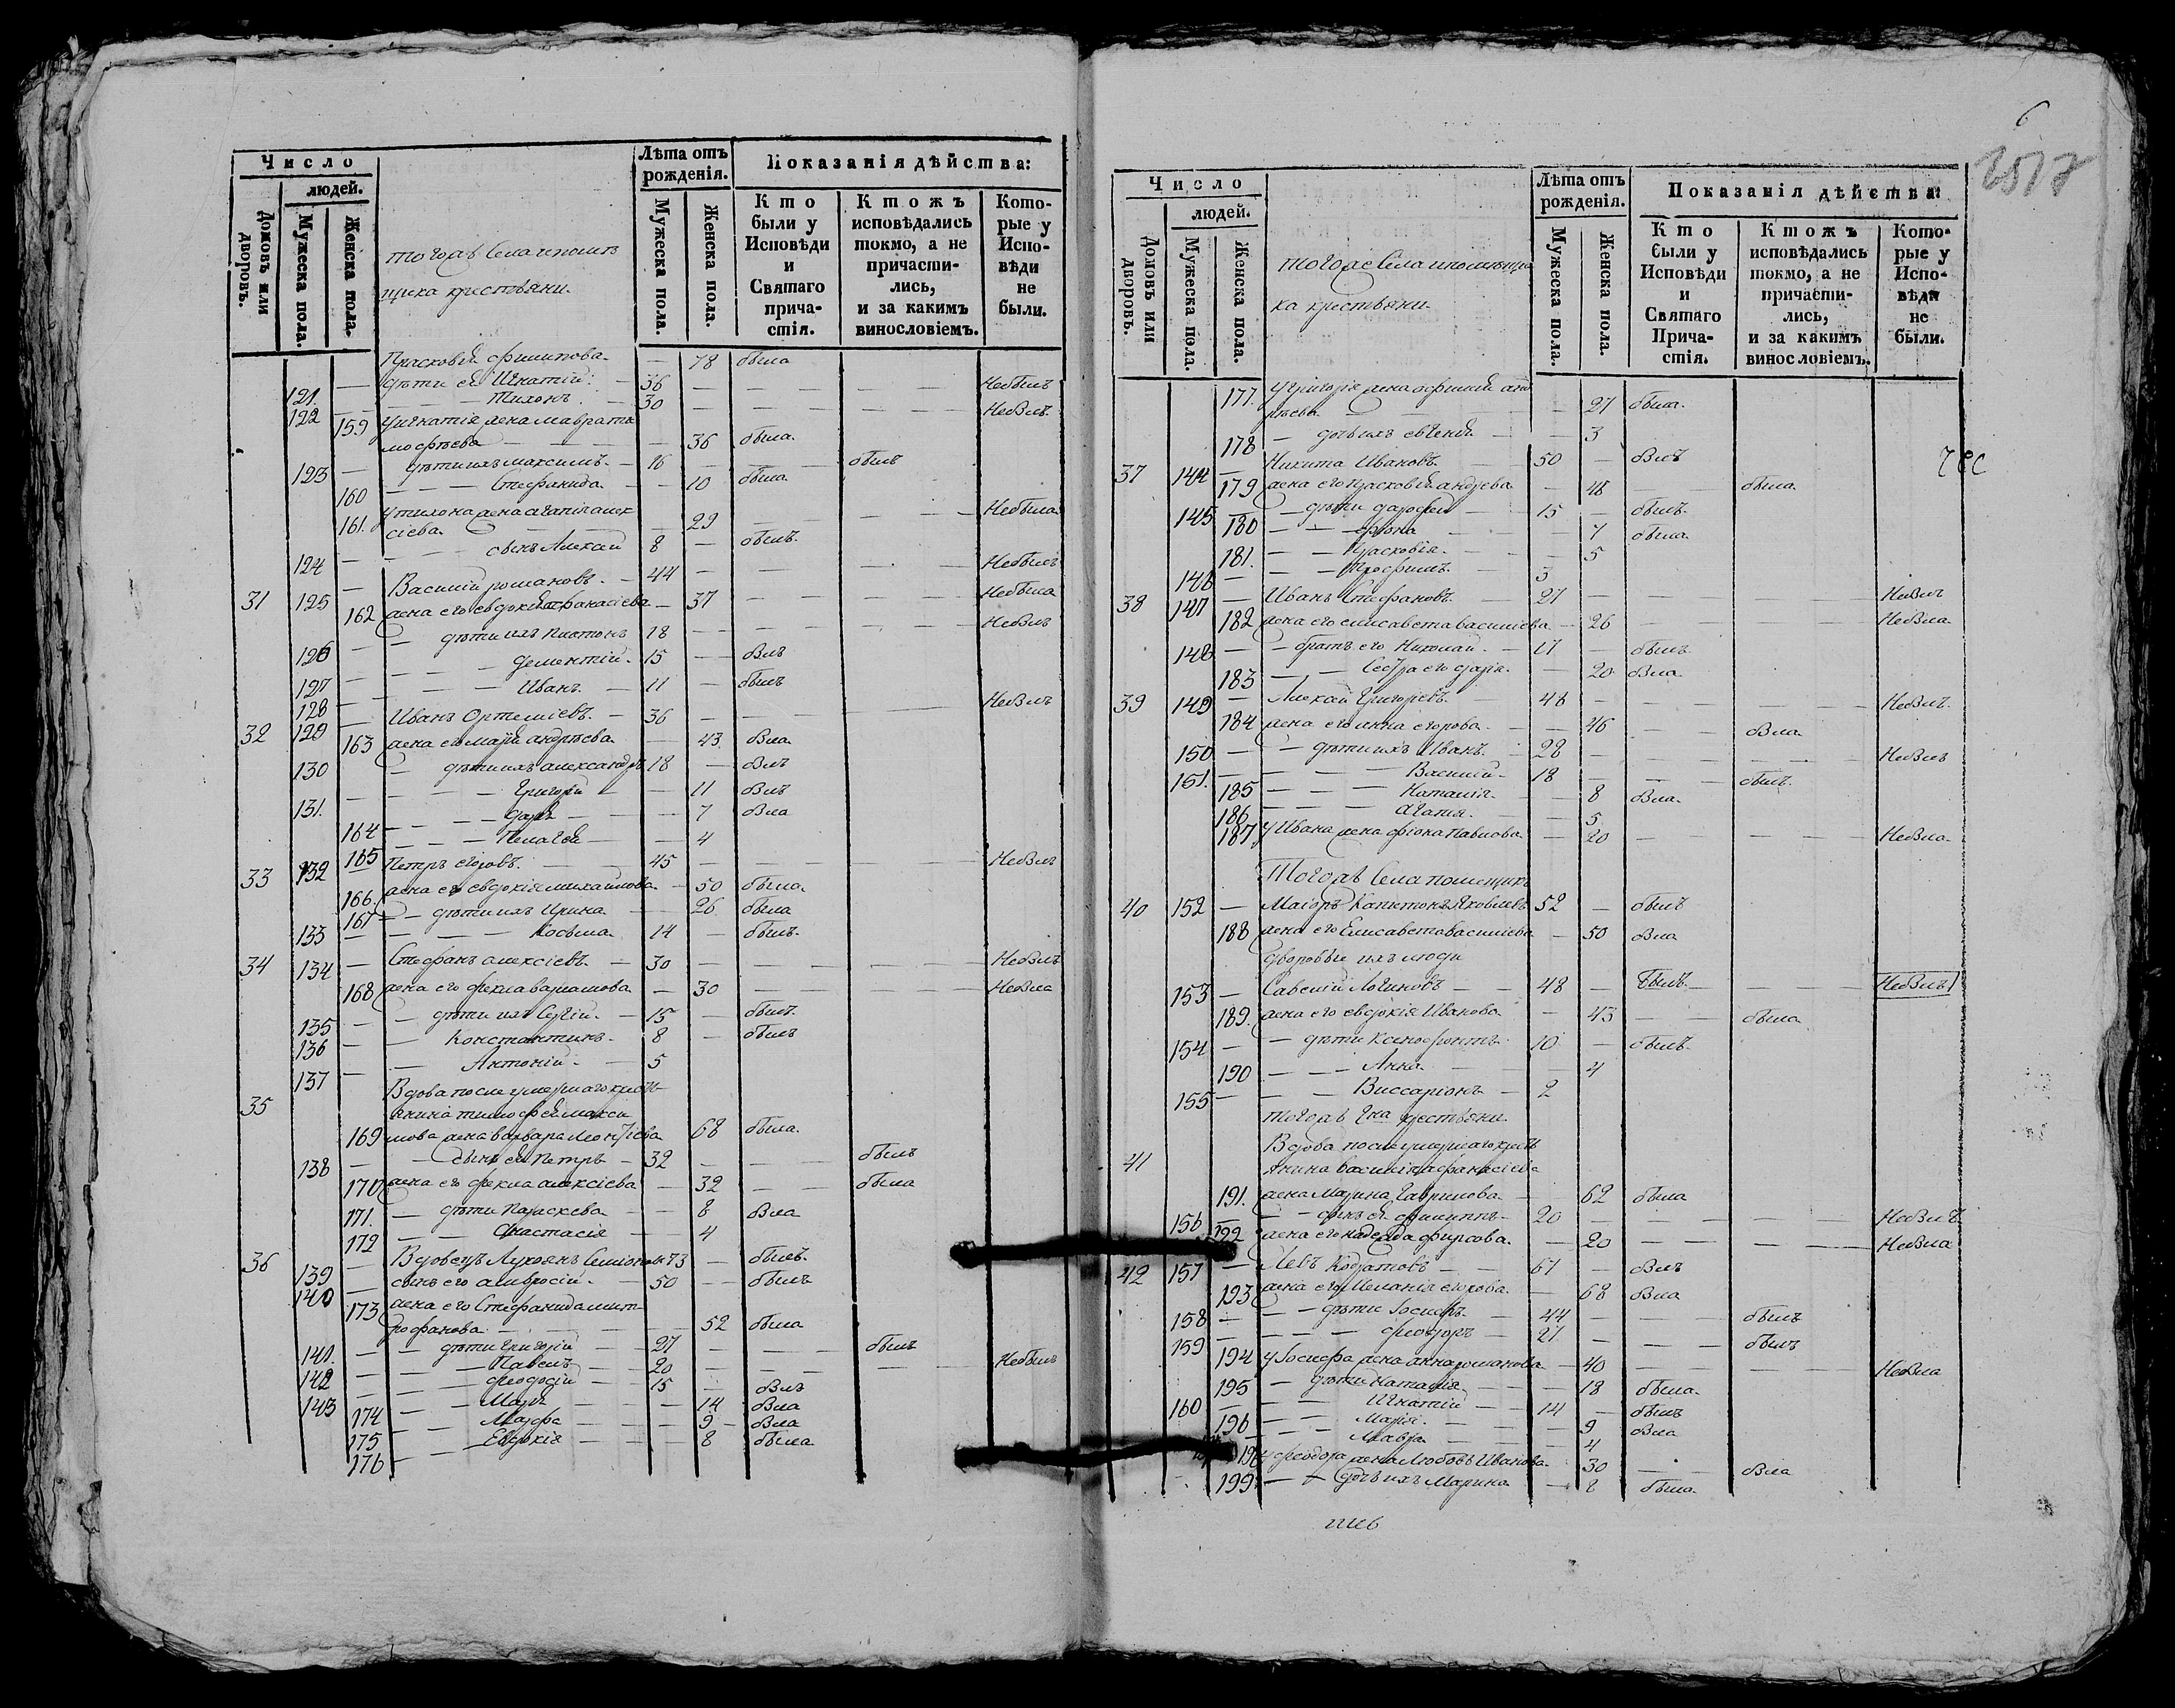 Число
людей.
Домовъ или дворовъ.
Мужеска пола.
Женска пола.
тогожъ Села ипомѣ
щика крестьяни
Лѣта отъ рожденія.
Мужеска пола.
Женска пола.
Показанія дѣйства:
Кто были у Исповѣди и Святаго причастія.
Ктожъ исповѣдались токмо, а не причастились, и за какимъ винословіемъ.
Которые у Исповѣди не были.
Прасковія филипова — 78 была
121. — дѣти ея Игнатій — 36 — — — Небылъ
122 — — Тихонъ — 30 — — — Небылъ
159 уигнатія жена мавра ти
мофѣева — — 36 была
123 — дѣти ихъ максимъ — 16 — — былъ
160 — — Стефанида — 10 была
161. утихона жена агапія алек
сіева — 29 — — Небыла
124 — — сынъ Алексѣй 8 — былъ
31 125 — Василій романовъ — 44 — — — Небылъ
162 жена его евдокія афанасіева — 37 — — Небыла
126 — дѣти ихъ Платонъ 18 — — — Небылъ
127 — — дементій 15 — былъ
128 — — Иванъ — 11 — былъ
32 129 — Иванъ Ортеміевъ — 36 — — — Небылъ
163 жена его марія андрѣева — 43 была
130 — дѣти ихъ александръ 18 — былъ
131. — — Григорій — — 11 былъ
164 — — дарья — — 7 была
165 — — Пелагея — — 4
33 132 Петръ егоровъ — 45 — — — Небылъ
166. жена его евдокія михайлова — 50 была
167 — дѣти ихъ Ирина — 26 была
133 — — Косьма — 14 — былъ
34 134 — Стефанъ алексіевъ — 30 — — — Небылъ
168 жена его фекла варламова — 30 — — Небыла
135 — дѣти ихъ Сергій — 15 — былъ
136 — — Константинъ — 8 — былъ
137 — — Антоній — 5
35 Вдова послѣ умершаго кресть
янина тимофея макси
169 мова жена варвара леонтіева 68 была
138 — — сынъ ея Петръ — 32 — — былъ
170 жена его фекла алексіева — 32 — была
171. — дѣти Параскева — — 8 была
172 — — Анастасія — 4
36 139 — Вдовецъ Лукоянъ Семіоновъ 73 — былъ
140 — сынъ его амвросій — 50 — былъ
173 жена его Стефанида мит
рофанова — — 52 была
141. — — дѣти григорій — 27 — — былъ
142 — — Павелъ — 20 — — — Небылъ
143 — — феодосій — 15 — былъ
174 — — Марія — — 14 была
175 — — Марфа — — 9 — была
176 — — Евдокія — — 8 была
6
2517
Число
людей.
Домовъ или дворовъ.
Мужеска пола.
Женска пола.
тогоже Села ипомѣщи
ка крестьяни
Лѣта отъ рожденія.
Мужеска пола.
Женска пола.
Показанія дѣйства:
Кто были у Исповѣди и Святаго Причастія.
Ктожъ исповѣдались токмо, а не причастились, и за какимъ винословіемъ.
Которые у Исповѣди не были.
177. Угригорія жена афимія анд
рѣева — — 27 была
178 — дочь ихъ евгенія — — 3
37 144 — Никита Ивановъ — 50 — былъ
179 жена его прасковія андрѣева — 48 — была
145 — дѣти дорофей — 15 — былъ
180 — — — 7 была
181. — — Прасковія — — 5
146 — — Трофимъ — 3
38 147 — Иванъ Стефановъ — 27 — — — Небылъ
182 жена его елисавета василіева — 26 — — Небыла
148 — — братъ его Николай — 17 — былъ
183 — — Сестра его дарія — 20 была
39 149 — Алексѣй Григорьевъ — 48 — — — Небылъ
184 жена его анна егорова — 46 — была
150 — — дѣти ихъ Иванъ — 28 — — — Небылъ
151. — — Василій — 18 — — былъ
185 — — Наталія — — 8 была
186 — — Агапія — — 5
187 у Ивана жена фіона павлова — 20 — — Небыла
Тогожъ Села помещикъ
40 152 — Маіоръ Капитонъ Яковлевъ 52 — былъ
188 жена его Елисавета василіева — 50 была
дворовые ихъ люди
153 — Савелій Логиновъ — 48 — былъ — — Небылъ
189. жена его евдокія Иванова — 43 — была
154 — — дѣти Ксенофонтъ 10 — былъ
190 — — Анна — — 4
155 — — Виссаріонъ — 2
тогожъ Гна крестьяни
41 Вдова послѣ умершаго кресть
янина василія афанасіева
191. жена Марина Гаврилова — 62 была
156 — — сынъ ея филиппъ — 20 — — — Небылъ
192 жена его надежда фирсова — 20 — — Небыла
42 157 — Левъ Кодратовъ — 67 — былъ
193 жена его Меланія егорова — 68 была
158 — — дѣти Іосифъ — 44 — — былъ
159 — — феодоръ — 27 — — былъ
194 у Іосифа жена анна романова — 40 — — Небыла
195 — дѣти наталія — — 18 была
160 — — Игнатій — 14 — былъ
196 — — Марія — — 9 была
— — Мавра — — 4
198 у феодора жена Любовь Иванова 30 — была
199 — — дочь ихъ Марина — 8 была